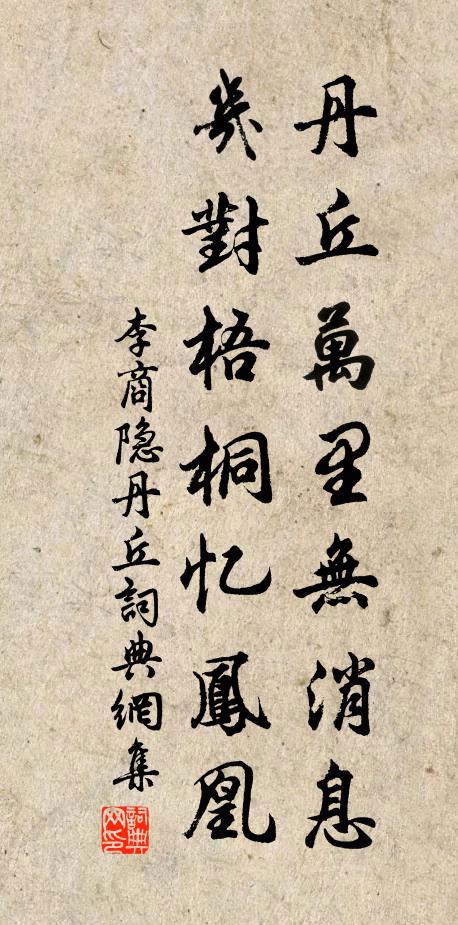 丹丘萬里無消息
幾對梧桐忆鳳凰
李商隐丹丘詞典網集
詞典网印